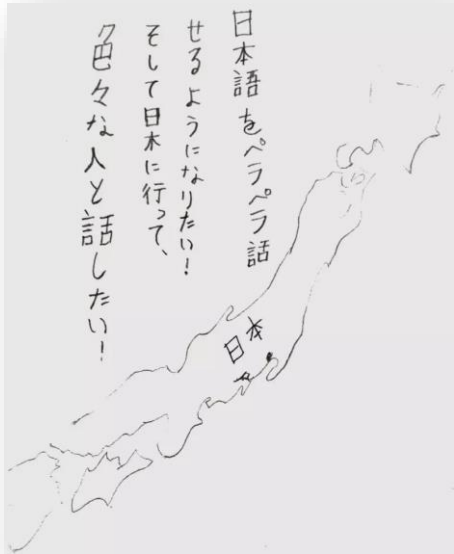 日本語をペラペラ話
せるようになりたい!
そして日木に行って、
色々な人と話したい!
日本